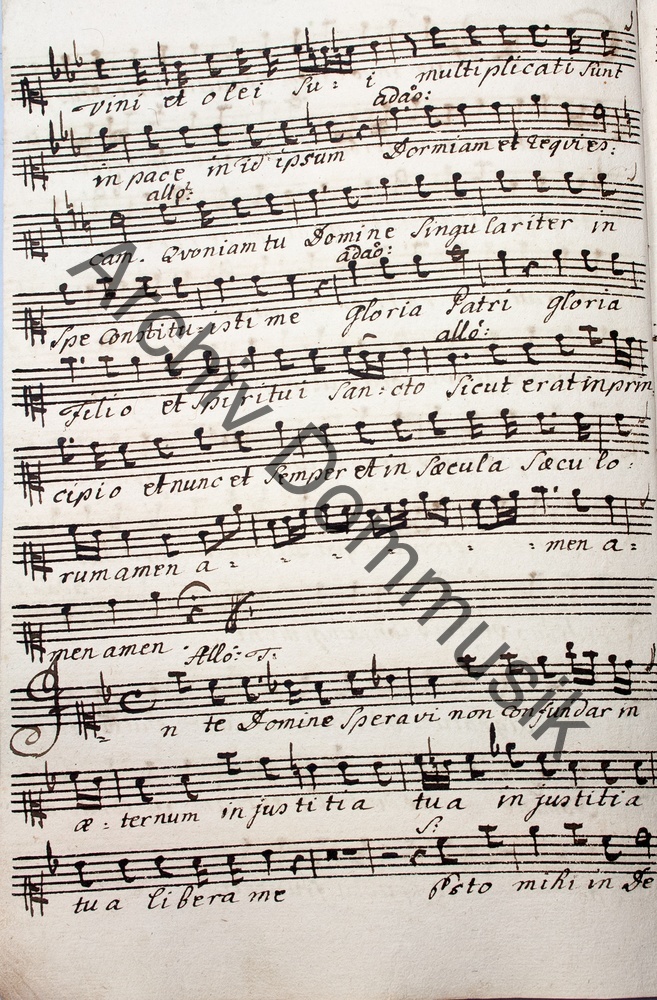 vini et olei su: i multiplicati sunt
adão:
in pace in id ipsum Dormiam et requies:
allo:
cam. Qvoniam tu Domine singulariter in
adão:
spe constitu: isti me Gloria Patri gloria
allo:
Filio et spiritui san: cto sicut erat in prin
cipio et nunc et semper et in sæcula sæculo:
rum amen a: - - - - : men a:
men amen
Allo: T:
In te Domine speravi non confundar in
æ: ternum in justitia tua in justitia
S:
tua libera me Esto mihi in De
Archiv Dommusik